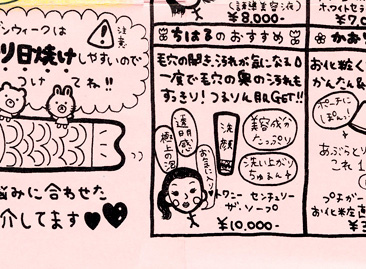 ンウィークは
注意
り日焼けしやすいので
つけ ね!!
悩みに合わせた
介してます♥♥
¥8,000-
ちはるのおすすめ
毛穴の開き、汚れが気になる
一度で毛穴の奥の汚れも
すっきり!つるりん肌GET!!
透明感
極上の泡
お気にいり
洗顔
美容成分
たっぷり
洗い上がり
ワニー センチュリー
ザ・ソープ
¥10,000-
ホワイトセ
¥7,0
かおり
お化粧く
かんたん&
ポーチに
ぽん!
あぶらとり
これ1
プチポー
おしろ
¥3